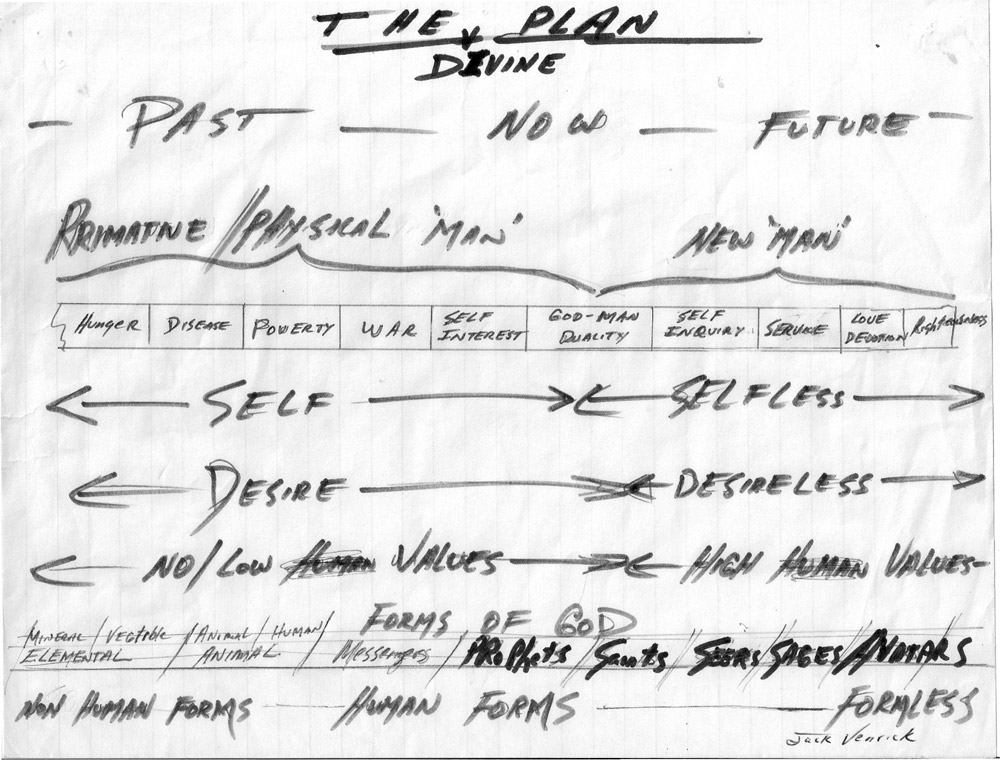 THE PLAN
DIVINE
- PAST - NOW - FUTURE -
PRIMATIVE/PHYSICAL 'MAN' NEW 'MAN'
Hunger DISEASE POVERTY WAR SELF INTEREST GOD-MAN QUALITY SELF INQUIRY SERVICE LOVE DEVOTION Righteousness
SELF SELFLESS
DESIRE DESIRELESS
NO/LOW HUMAN VALUES HIGH HUMAN VALUES-
FORMS OF GOD
MINERAL/VEGTIBLE/ANIMAL/HUMAN/
ELEMENTAL / ANIMAL / Messengers / PROPhets / Saints / SEERS / SAGES / AVATARS
NON HUMAN FORMS HUMAN FORMS FORMLESS
Jack Venrick